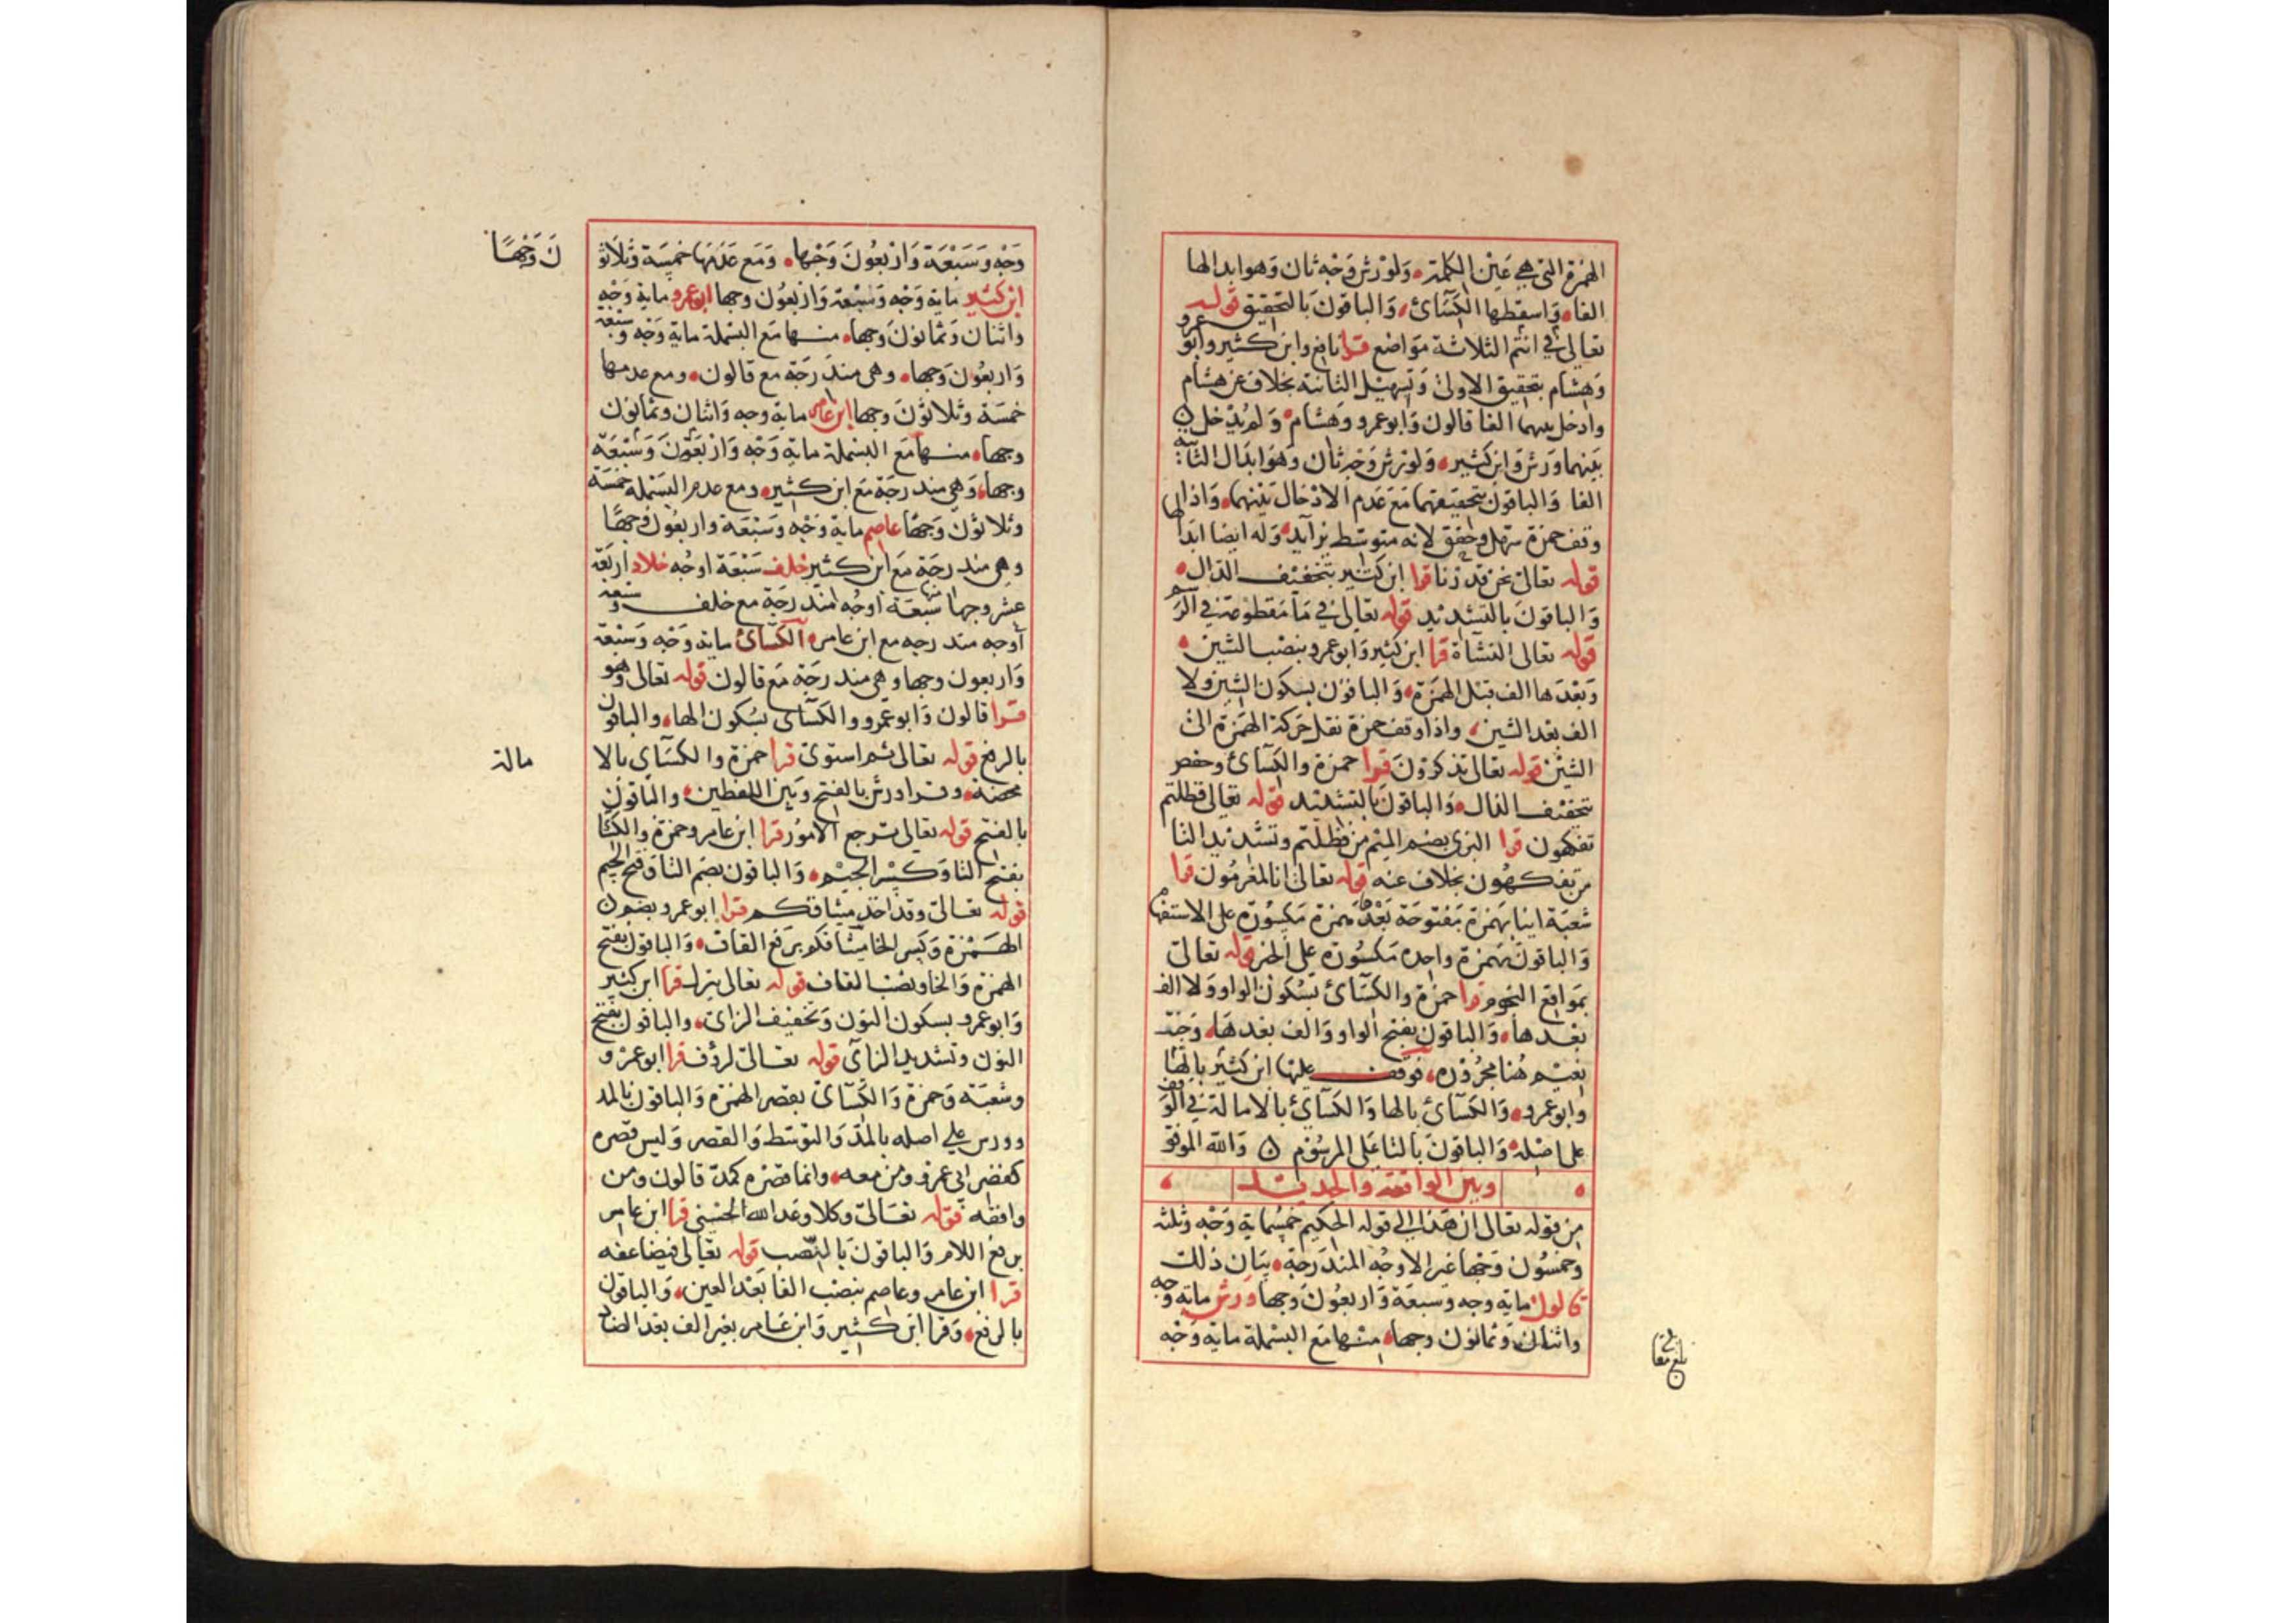 الهمزة التي هي عين الكلمة ولورش وجه ثان وهو ابدالها
الفا واسقطها الكسائ والباقون بالتحقيق قوله
تعالى في انتم الثلاثة مواضع قرا نافع وابن كثير وابو عمرو
وهشام بتحقيق الاولى وتسهيل الثانية بخلاف عن هشام
وادخل بينهما الفا قالون وابو عمرو وهشام ولم يدخل
بينهما ورش وابن كثير ولورش وجه ثان وهو ابدال الثانية
الفا والباقون بتحقيقهما مع عدم الادخال بينهما واذا
وقف حمزة سهل وحقق لانه متوسط بزايد وله ايضا ابدالها
قوله تعالى نحن قدرنا قرا ابن كثير بتخفيف الدال
والباقون بالتشديد قوله تعالى في ما مقطوعة في الرسم
قوله تعالى النشأة قرا ابن كثير وابو عمرو بنصب الشين
وبعدها الف قبل الهمزة والباقون بسكون الشين ولا
الف بعد الشين واذا وقف حمزة نقل حركة الهمزة الى
الشين قوله تعالى تذكرون قرا حمزة والكسائ وحفص
بتخفيف الذال والباقون بالتشديد قوله تعالى فظلتم
تفكهون قرا البزي بضم الميم من فظلتم وتشديد التا
من تفكهون بخلاف عنه قوله تعالى انا لمغرمون قرا
شعبة اينا بهمزة مفتوحة بعدها همزة مكسورة على الاستفهام
والباقون بهمزة واحده مكسورة على الخبر قوله تعالى
بمواقع النجوم قرا حمزة والكسائ بسكون الواو ولا الف
بعدها والباقون بفتح الواو والف بعدها وجنت
نعيم هنا مجروره فوقف عليها ابن كثير بالها
وابو عمرو والكسائ بالها والكسائ بالامالة في الوقف
على اصله والباقون بالتا على المرسوم والله الموفق
وبين الواقعة والحديد
من قوله تعالى ان هذا الى قوله الحكيم خمسماية وجه وثلثه
وخمسون وجها غير الاوجه المندرجة بيان ذلك
قالون ماية وجه وسبعة واربعون وجها ورش ماية وجه
واثنان وثمانون وجها منها مع البسملة ماية وجه
بلغ مقابلة
وجه وسبعة واربعون وجها ومع عدمها خمسة وثلاثون وجها
ابن كثير ماية وجه وسبعة واربعون وجها ابو عمرو ماية وجه
واثنان وثمانون وجها منها مع البسملة ماية وجه وسبعة
واربعون وجها وهي مندرجة مع قالون ومع عدمها
خمسة وثلاثون وجها ابن عامر ماية وجه واثنان وثمانون
وجها منها مع البسملة ماية وجه واربعون وسبعة
وجها وهي مندرجة مع ابن كثير ومع عدم البسملة خمسة
وثلاثون وجها عاصم ماية وجه وسبعة واربعون وجها
وهي مندرجة مع ابن كثير خلف سبعة اوجه خلاد اربعة
عشر وجها منها سبعة اوجه مندرجة مع خلف وسبعة
أوجه مندرجه مع ابن عامر الكسائ ماية وجه وسبعة
واربعون وجها وهي مندرجة مع قالون قوله تعالى وهو
قرا قالون وابو عمرو والكسائ بسكون الها والباقون
بالرفع قوله تعالى ثم استوى قرا حمزة والكسائ بالامالة
محضة وقرا ورش بالفتح وبين اللفظين والباقون
بالفتح قوله تعالى ترجع الامور قرا ابن عامر وحمزة والكسا
بفتح التا وكسر الجيم والباقون بضم التا وفتح الجيم
قوله تعالى وقد اخذ ميثاقكم قرا ابو عمرو بضم
الهمزة وكسر الخا ميثاقكم برفع القاف والباقون بفتح
الهمزة والخا ونصب القاف قوله تعالى ينزل قرا ابن كثير
وابو عمرو بسكون النون وتخفيف الزاى والباقون بفتح
النون وتشديد الزاى قوله تعالى لرؤف قرا ابو عمرو
وشعبة وحمزة والكسائ بقصر الهمزة والباقون بالمد
وورش على اصله بالمد والتوسط والقصر وليس قصره
كقصر ابي عمرو ومن معه وانما قصره كمد قالون ومن
وافقه قوله تعالى وكلا وعد الله الحسنى قرا ابن عامر
برفع اللام والباقون بالنصب قوله تعالى فيضاعفه
قرا ابن عامر وعاصم بنصب الفا بعد العين والباقون
بالرفع وقرا ابن كثير وابن عامر بغير الف بعد الضاد